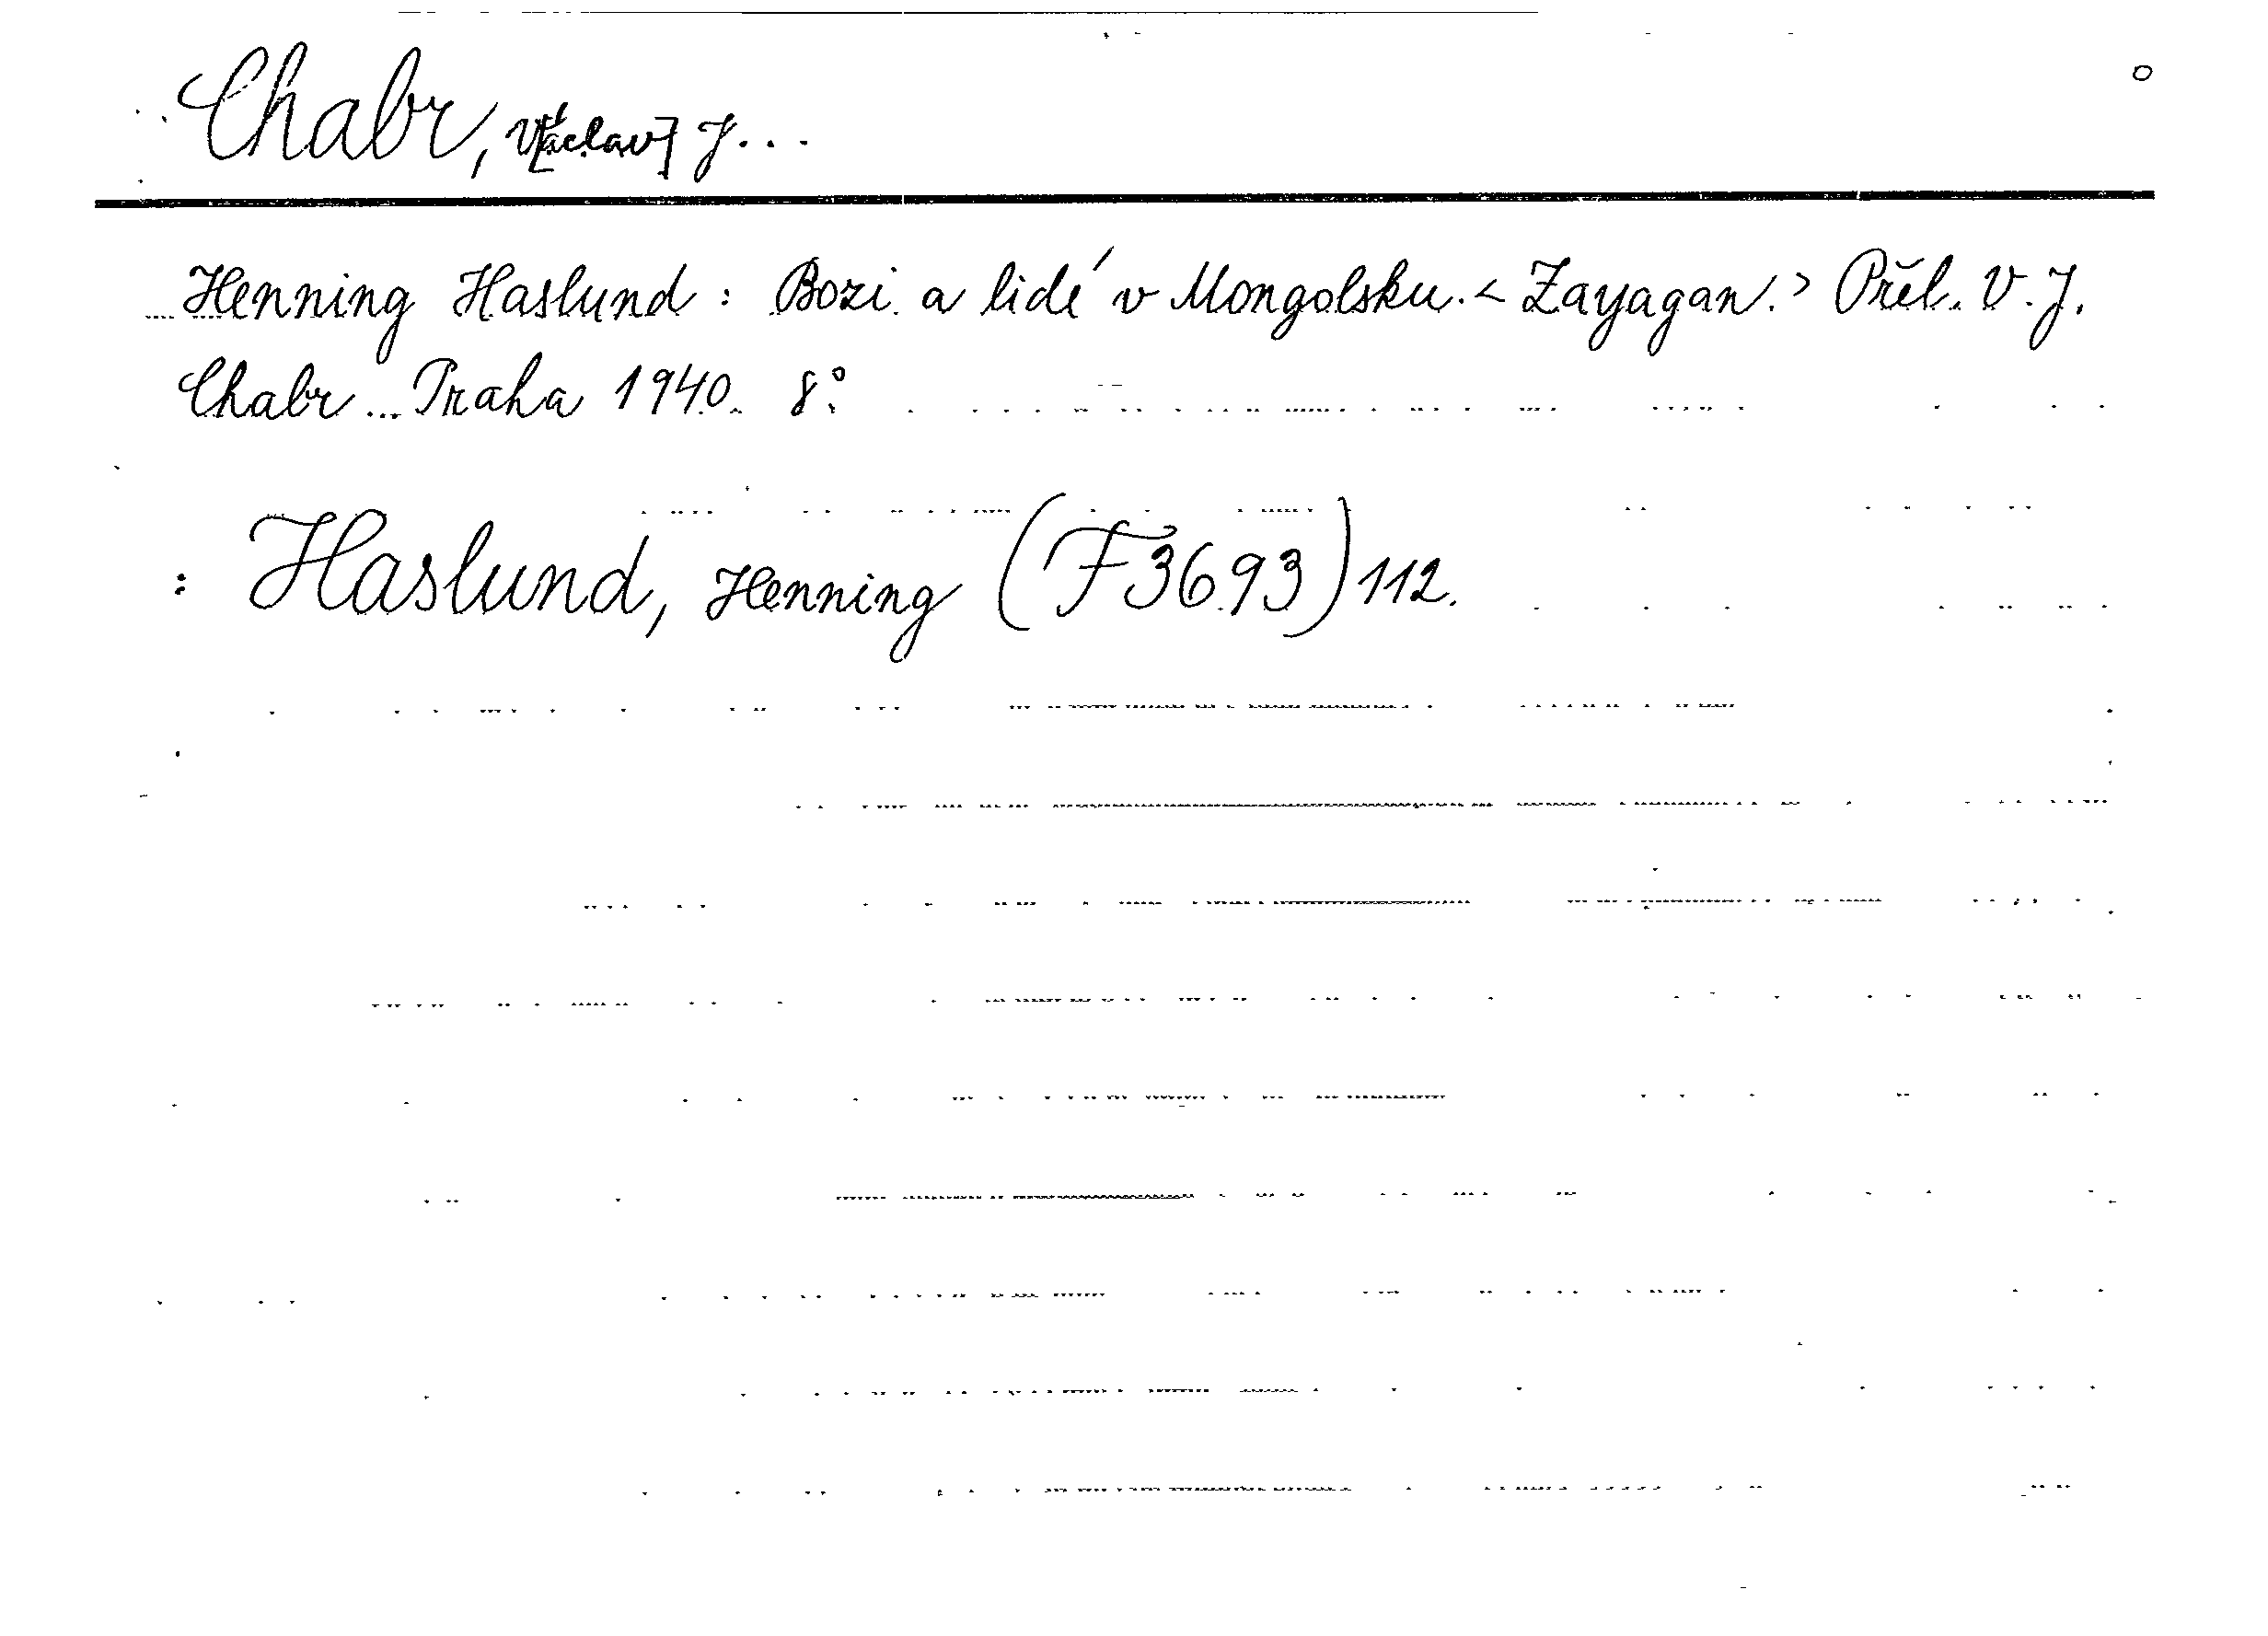 Chabr, V[áclav] J...
Henning Haslund : Bozi a lidé v Mongolsku. < Zayagan. > Přel. V. J.
Chabr ... Praha 1940. 8°.
: Haslund, Henning (F 3693) 112.